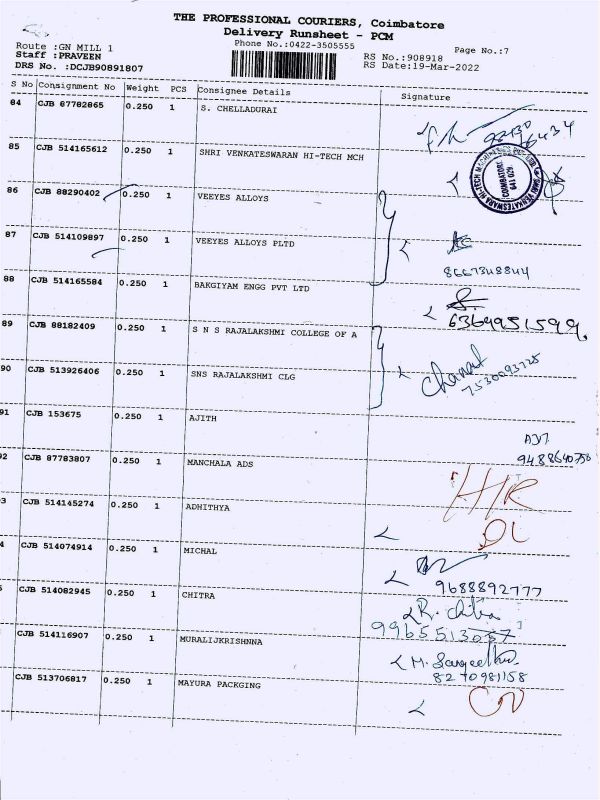 THE PROFESSIONAL COURIERS, Coimbatore
Delivery Runsheet - PCM
Route :GN MILL 1
Phone No.:0422-3505555
Page No.:7
Staff :PRAVEEN
RS No.:908918
DRS No. :DCJB90891807
RS Date:19-Mar-2022
S No Consignment No Weight PCS Consignee Details Signature
84 CJB 87782865 0.250 1 S. CHELLADURAI
85 CJB 514165612 0.250 1 SHRI VENKATESWARAN HI-TECH MCH
COIMBATORE
641 029.
86 CJB 88290402 0.250 1 VEEYES ALLOYS
87 CJB 514109897 0.250 1 VEEYES ALLOYS PLTD
8667348844
88 CJB 514165584 0.250 1 BAKGIYAM ENGG PVT LTD
6364951599.
89 CJB 88182409 0.250 1 S N S RAJALAKSHMI COLLEGE OF A
90 CJB 513926406 0.250 1 SNS RAJALAKSHMI CLG
7530093725
91 CJB 153675 0.250 1 AJITH
9488640756
92 CJB 87783807 0.250 1 MANCHALA ADS
H/R
3 CJB 514145274 0.250 1 ADHITHYA
DL
4 CJB 514074914 0.250 1 MICHAL
9688892777
5 CJB 514082945 0.250 1 CHITRA
R. Chitra
CJB 514116907 0.250 1 MURALIJKRISHNNA
M. Sangeetha
8270981158
CJB 513706817 0.250 1 MAYURA PACKGING